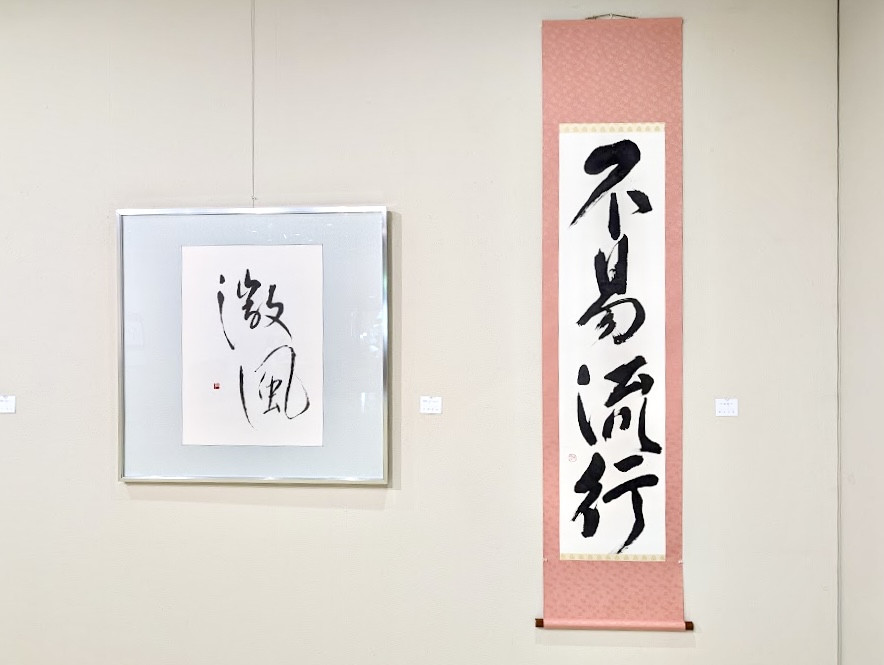 微風
不易流行